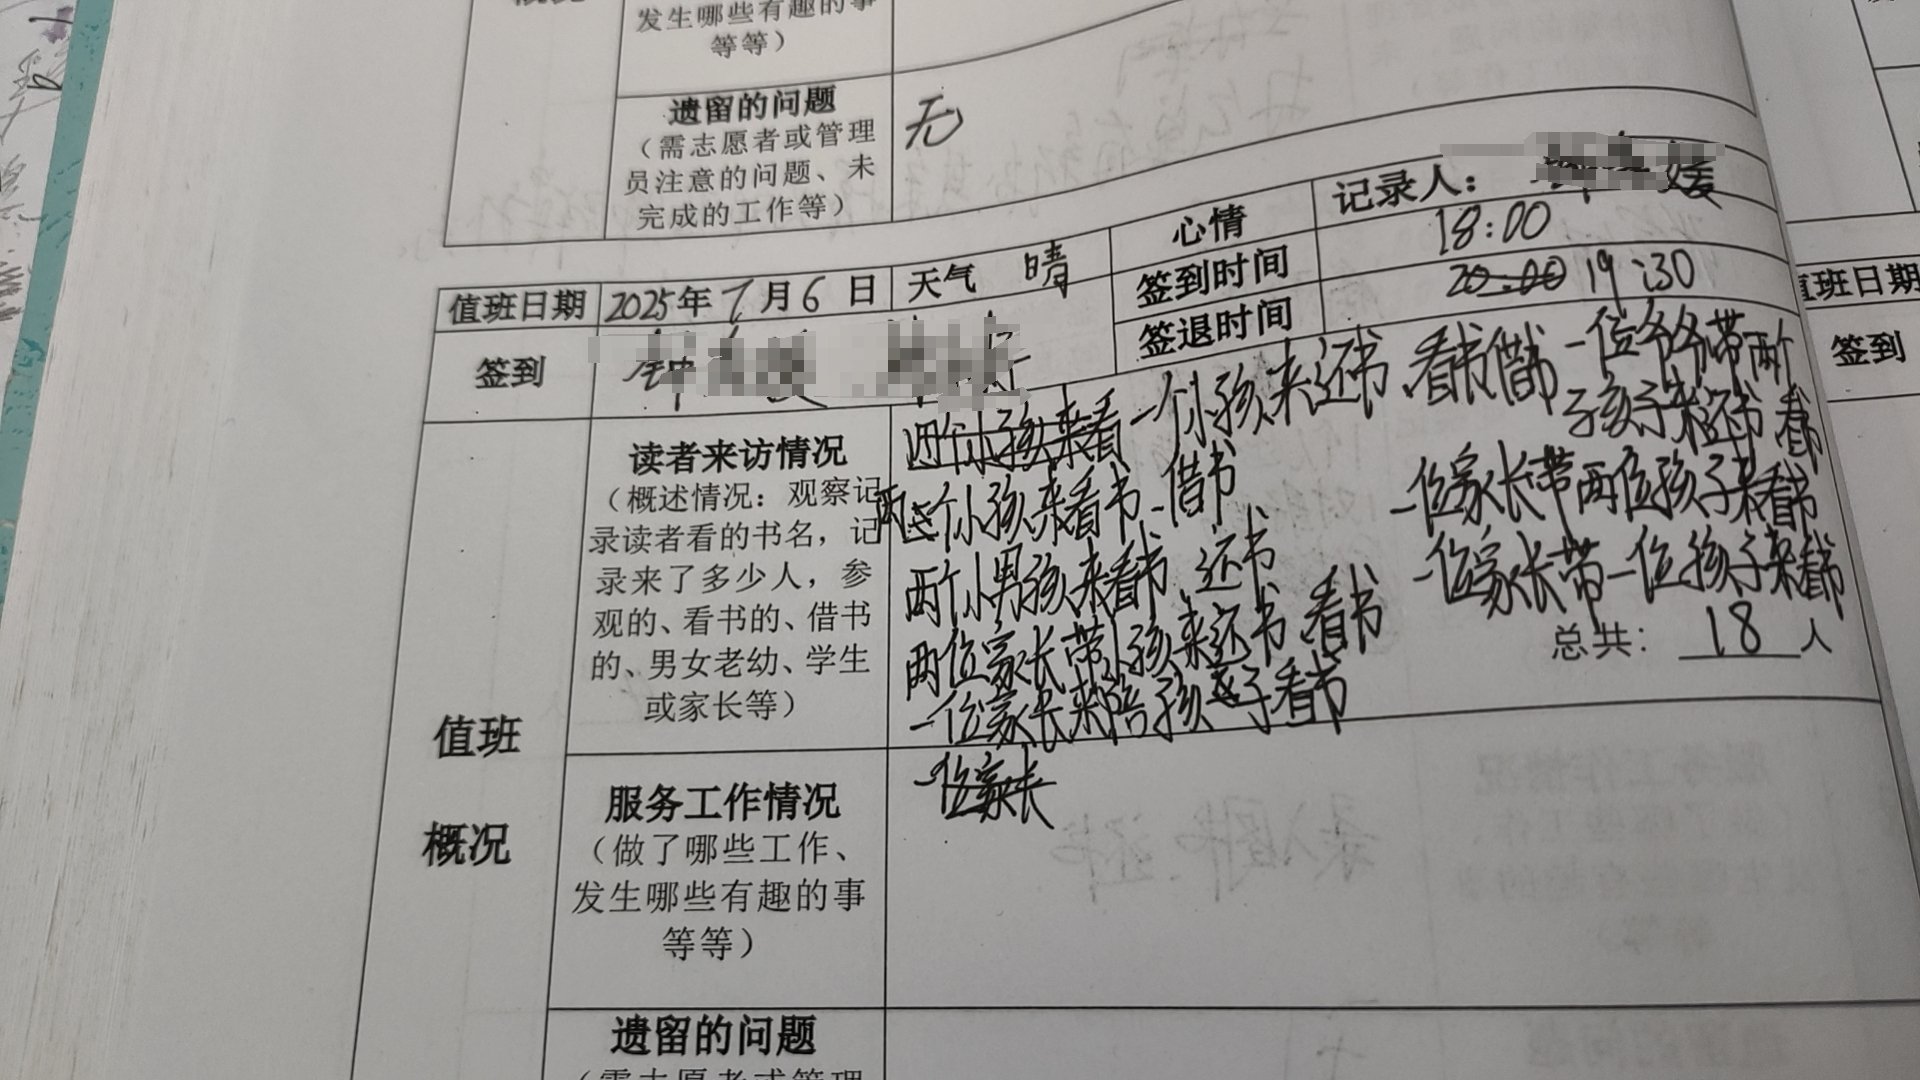 概况
发生哪些有趣的事
等等）
遗留的问题
（需志愿者或管理
员注意的问题、未
完成的工作等）
无
记录人： 媛
值班日期 2025年7月6日 天气 晴 心情
签到 签到时间 18:00
签退时间 20:00 19:30
值班
概况
读者来访情况
（概述情况：观察记
录读者看的书名，记
录来了多少人，参
观的、看书的、借书
的、男女老幼、学生
或家长等）
四个小孩来看 一个小孩来还书、看书借书
两个小孩来看书、借书
两个小男孩来看书、还书
两位家长带小孩来还书、看书
一位家长来陪孩子看书
一位爷爷带两个
孩子来还书 看书
一位家长带两位孩子来看书
一位家长带一位孩子来看书
总共：18人
服务工作情况
（做了哪些工作、
发生哪些有趣的事
等等）
一位家长
遗留的问题
（需志愿者或管理
值班日期
签到